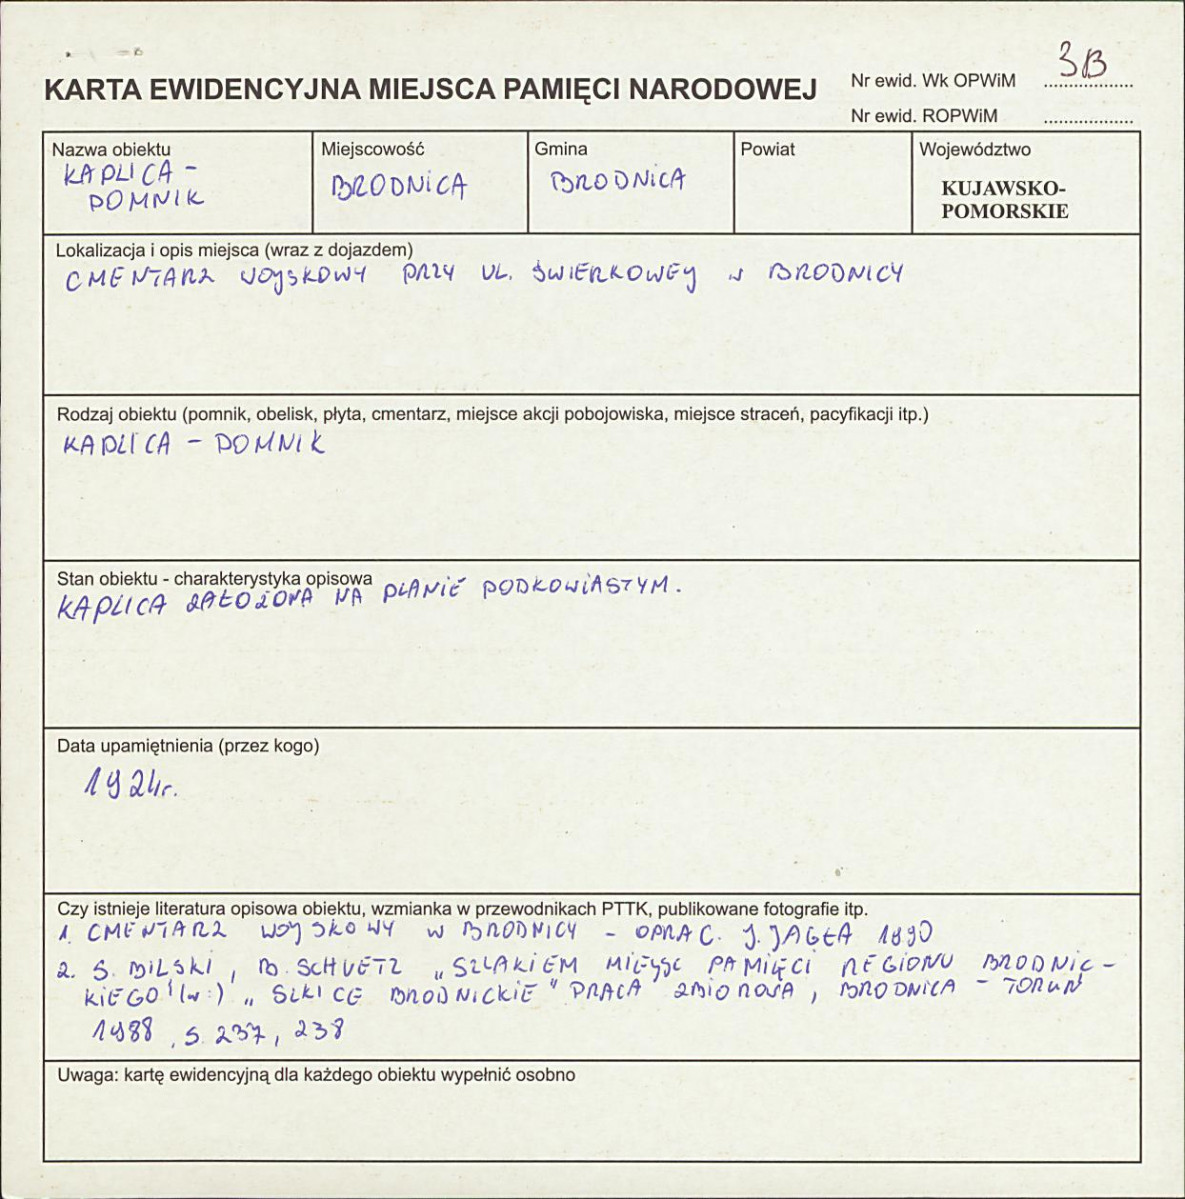 KARTA EWIDENCYJNA MIEJSCA PAMIĘCI NARODOWEJ
Nr ewid. Wk OPWiM 3B
Nr ewid. ROPWiM
Nazwa obiektu
KAPLICA -
POMNIK
Miejscowość
BRODNICA
Gmina
BRODNICA
Powiat
Województwo
KUJAWSKO-
POMORSKIE
Lokalizacja i opis miejsca (wraz z dojazdem)
CMENTARZ WOJSKOWY PRZY UL. ŚWIERKOWEJ W BRODNICY
Rodzaj obiektu (pomnik, obelisk, płyta, cmentarz, miejsce akcji pobojowiska, miejsce straceń, pacyfikacji itp.)
KAPLICA - POMNIK
Stan obiektu - charakterystyka opisowa
KAPLICA ZAŁOŻONA NA PLANIE PODKOWIASTYM.
Data upamiętnienia (przez kogo)
1924r.
Czy istnieje literatura opisowa obiektu, wzmianka w przewodnikach PTTK, publikowane fotografie itp.
1. CMENTARZ WOJSKOWY W BRODNICY - OPRAC. J. JAGŁA 1990
2. S. BILSKI, B. SCHUETZ „SZLAKIEM MIEJSC PAMIĘCI REGIONU BRODNIC-
KIEGO" (w:) „SZKICE BRODNICKIE" PRACA ZBIOROWA, BRODNICA - TORUŃ
1988, S. 237, 238
Uwaga: kartę ewidencyjną dla każdego obiektu wypełnić osobno